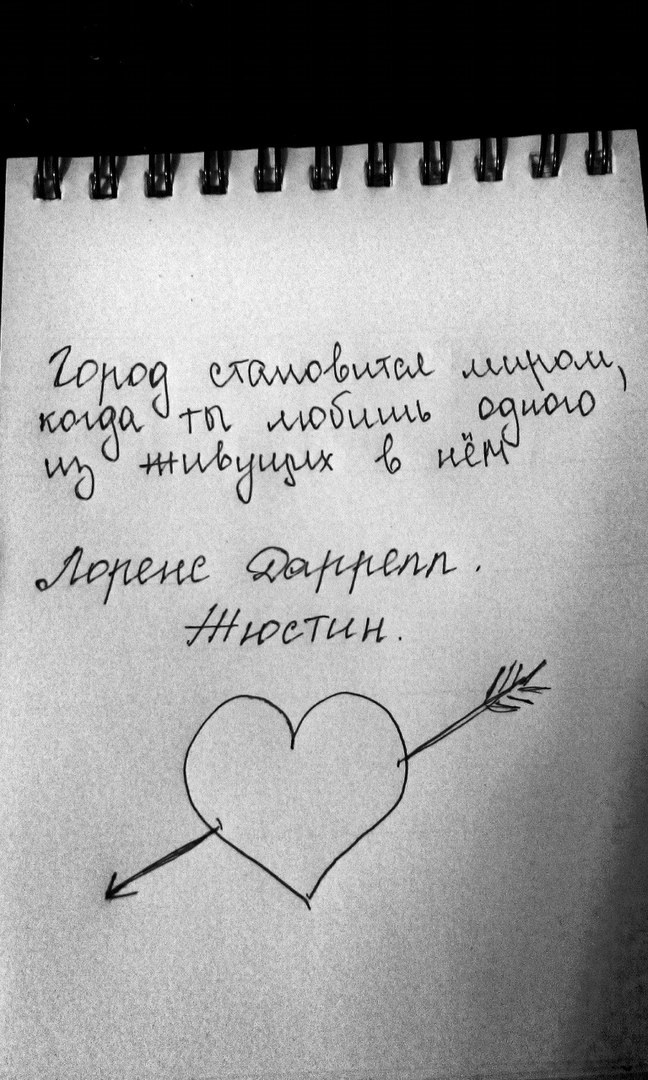 Город становится миром,
когда ты любишь одного
из живущих в нём
Лоренс Даррелл.
Жюстин.